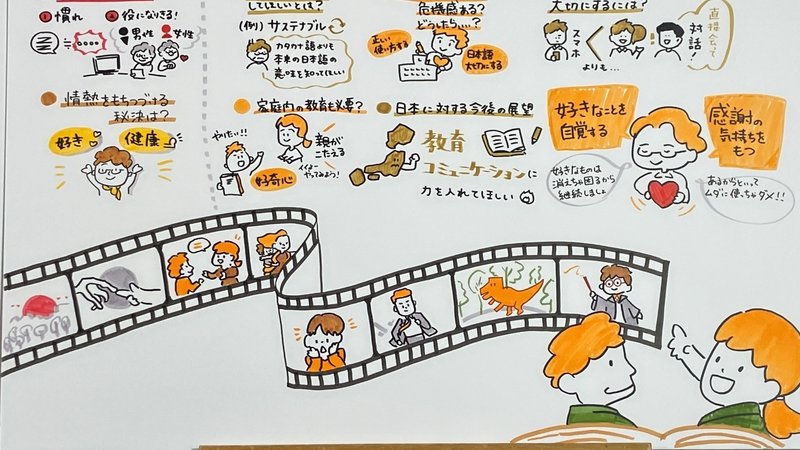 ①慣れ
②役になりきる!
男性
女性
情熱をもちつづける
秘訣は?
好き
健康
してほしいとは?
(例)サステナブル
カタカナ語よりも
本来の日本語の
意味を知ってほしい
危機感ある?
どうしたら…?
正しい
使い方する
日本語
大切にする
大切にするには?
スマホ
よりも…
直接会って
対話!
家庭内の教育も必要?
やりたい!!
親が
こたえる
いいよー
やってみよう!
好奇心
日本に対する今後の展望
教育
コミュニケーションに
力を入れてほしい
好きなことを
自覚する
好きなものは
消えちゃ困るから
継続しましょ
感謝の
気持ちを
もつ
あるからといって
ムダに使っちゃダメ!!